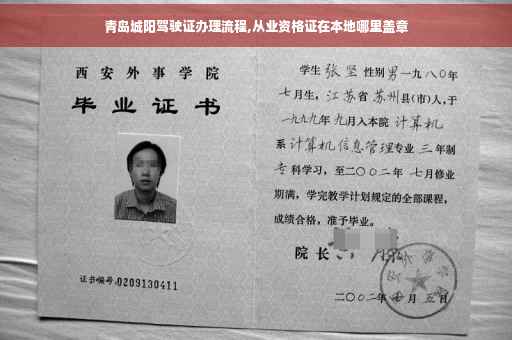 青岛城阳驾驶证办理流程,从业资格证在本地哪里盖章
西安外事学院
毕业证书
证书编号:0209130411
学生 张坚 性别 男 一九八〇年
七月生，江苏省 苏州县(市)人，于
一九九九年 九月入本院 计算机
系 计算机信息管理专业 三 年制
专科学习，至二〇〇二年 七月修业
期满，学完教学计划规定的全部课程，
成绩合格，准予毕业。
院长
二〇〇二年 七月 五日